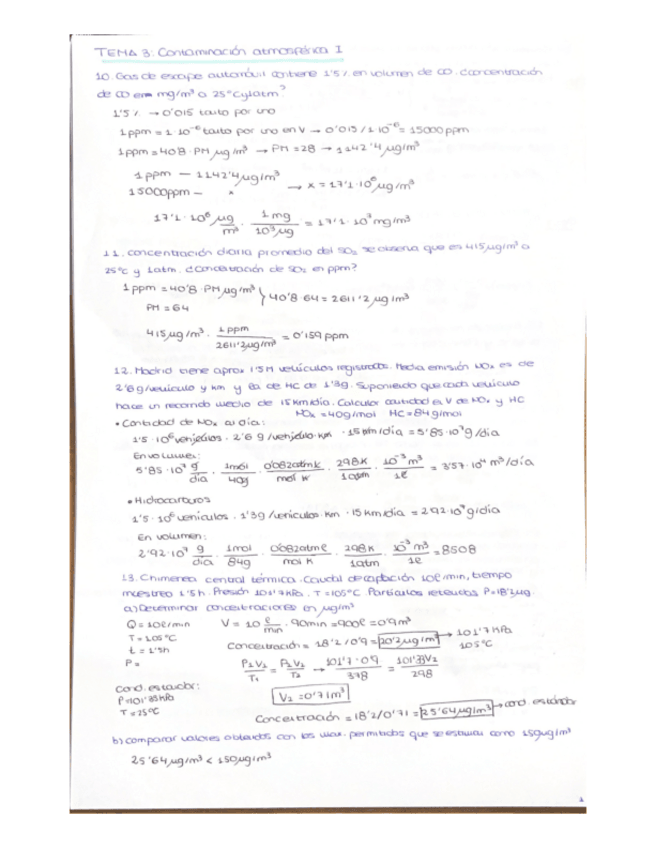 TEMA 3: Contaminación atmosférica I
10. Gas de escape automóvil contiene 1'5% en volumen de CO. ¿Concentración
de CO en mg/m³ a 25ºC y 1atm?
1'5% → 0'015 tanto por uno
1ppm = 1·10⁻⁶ tanto por uno en V → 0'015/1·10⁻⁶ = 15000ppm
1ppm = 40'8·PM μg/m³ → PM = 28 → 1142'4 μg/m³
1ppm — 1142'4 μg/m³
15000ppm — x → x = 17'1·10⁶ μg/m³
17'1·10⁶ μg/m³ · 1mg/10³μg = 17'1·10³ mg/m³
11. Concentración diaria promedio del SO₂ se observa que es 415 μg/m³ a
25ºC y 1atm. ¿Concentración de SO₂ en ppm?
1ppm = 40'8·PM μg/m³ } 40'8·64 = 2611'2 μg/m³
PM = 64
415 μg/m³ · 1ppm/2611'2 μg/m³ = 0'159 ppm
12. Madrid tiene aprox 1'5M vehículos registrados. Media emisión NOx es de
2'6 g/vehículo y km y la de HC de 1'3g. Suponiendo que cada vehículo
hace un recorrido medio de 15 Km/día. Calcular cantidad el V de NOx y HC
NOx = 40g/mol HC = 84g/mol
• Cantidad de NOx al día:
1'5·10⁶ vehículos · 2'6 g/vehículo·km · 15 km/día = 5'85·10⁷ g/día
En volumen:
5'85·10⁷ g/día · 1mol/40g · 0'082atm·l/mol·K · 298K/1atm · 10⁻³m³/1l = 3'57·10⁴ m³/día
• Hidrocarburos
1'5·10⁶ vehículos · 1'3g/vehículos·km · 15 km/día = 2'92·10⁷ g/día
En volumen:
2'92·10⁷ g/día · 1mol/84g · 0'082atm·l/mol·K · 298K/1atm · 10⁻³m³/1l = 8508
13. Chimenea central térmica. Caudal de captación 10l/min, tiempo
muestreo 1'5h. Presión 101'7kPa. T = 105ºC. Partículas retenidas P = 18'2μg.
a) Determinar concentraciones en μg/m³
Q = 10l/min V = 10 l/min · 90min = 900l = 0'9m³
T = 105ºC
t = 1'5h Concentración = 18'2/0'9 = 20'2 μg/m³ → 101'7 kPa 105ºC
P =
P₁V₁/T₁ = P₂V₂/T₂ → 101'7·0'9/378 = 101'33V₂/298
Cond. estándar:
P = 101'33kPa V₂ = 0'71m³
T = 25ºC
Concentración = 18'2/0'71 = 25'64 μg/m³ → cond. estándar
b) comparar valores obtenidos con los max. permitidos que se estiman como 150μg/m³
25'64 μg/m³ < 150 μg/m³
1